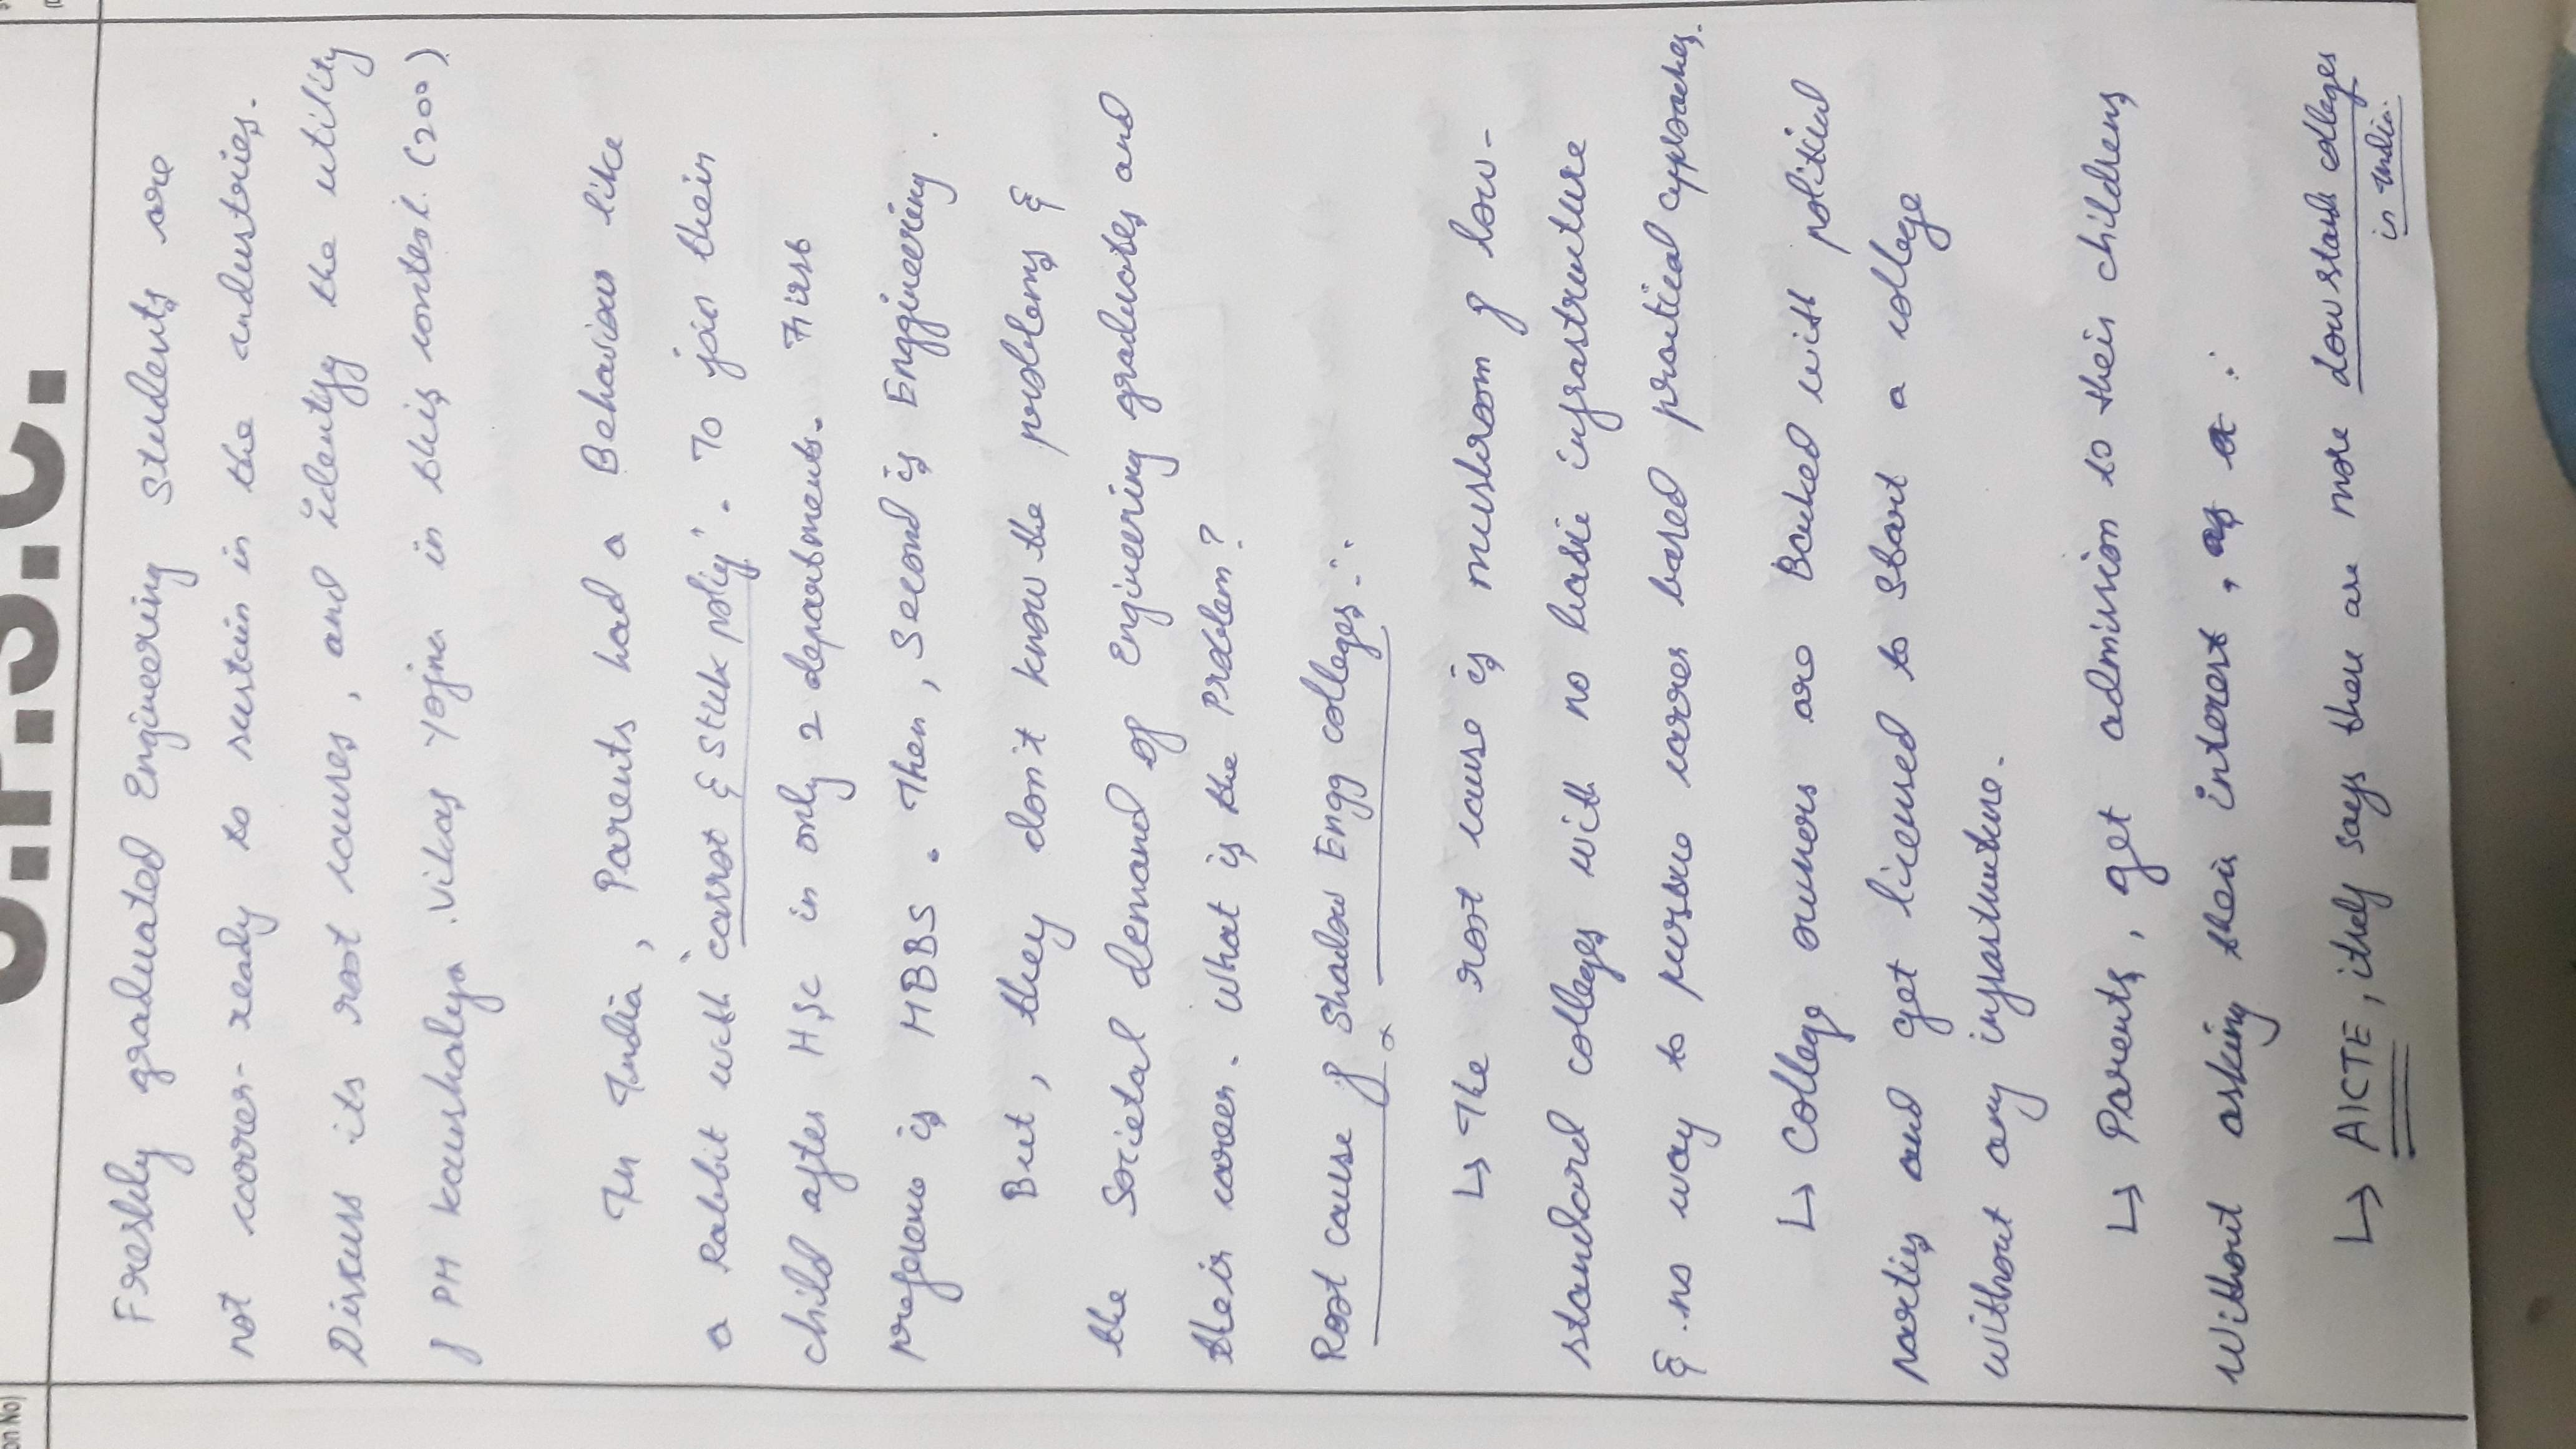 U.P.S.C.
on No)
Freshly graduated Engineering Students are
not career-ready to sustain in the industries.
Discuss its root causes, and identify the utility
of PM Kaushalya Vikas Yojna in this context. (200)
In India, Parents had a Behaviour like
a Rabbit with 'carrot & stick policy'. To join their
child after HSc in only 2 departments. First
preference is MBBS. Then, Second is Engineering.
But, they don't know the problems &
the Societal demand of Engineering graduates and
their career. What is the Problem?
Root cause of Shadow Engg colleges :-
↳ The root cause is mushroom of low-
standard colleges with no basic infrastructure
& no way to pursue career based practical approaches.
↳ College owners are Backed with political
parties and get licensed to start a college
without any infrastructure.
↳ Parents, get admission to their childrens
without asking their interest, as
↳ AICTE, itself says there are more low stand colleges
in India.